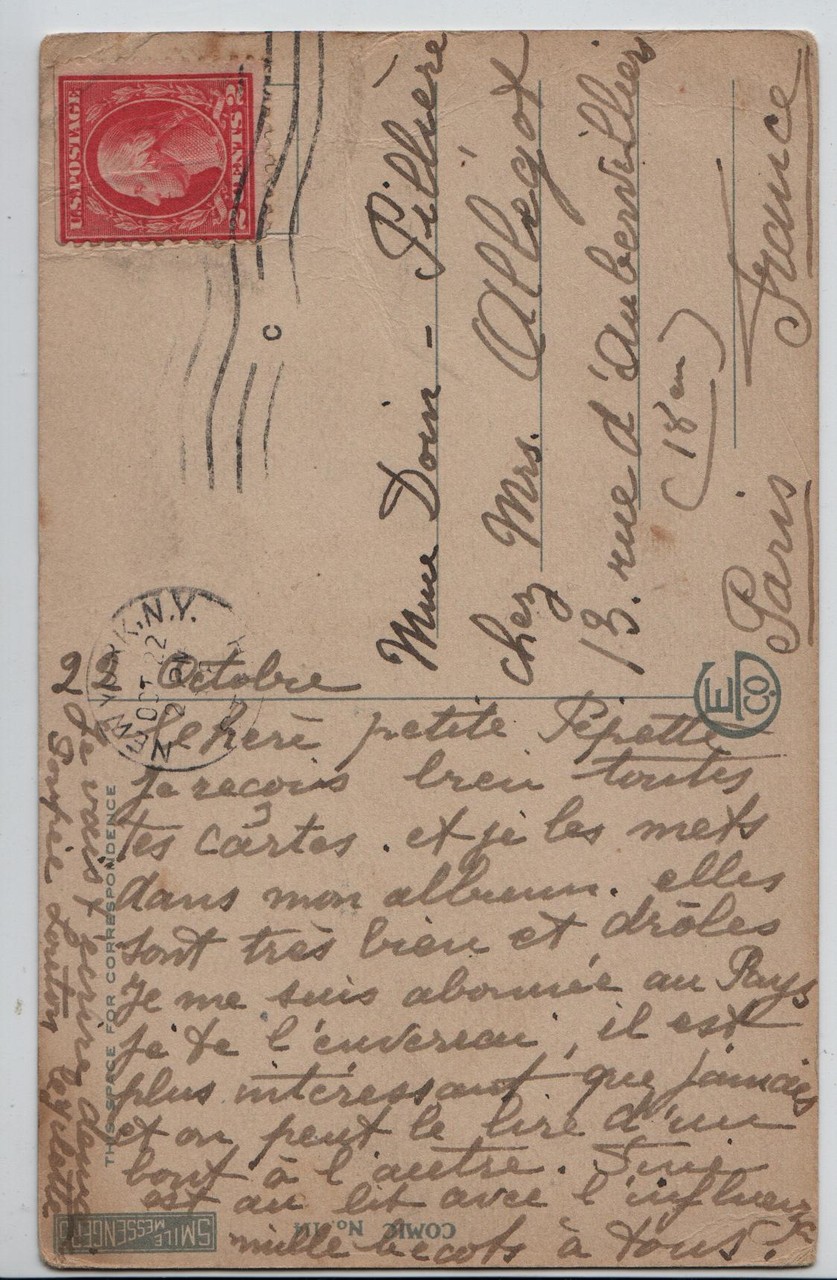 22 Octobre
Chere petite Pepette
Je recois bien toutes
tes cartes. et je les mets
dans mon albumn. elles
sont très bien et drôles
Je me suis abonnée au Pays
je te l'enverrai, il est
plus intéressant que jamais
et on peut le lire d'un
bout à l'autre.
est au lit avec l'influenza
mille becots à tous.
Je vais t'écrire
THIS SPACE FOR CORRESPONDENCE
SMILE MESSENGERS
COMIC No. 114
E CO
U.S. POSTAGE
2 CENTS 2
NEW YORK, N.Y.
OCT 22
2 PM
C
3
Mme Doin - Pillière
chez Mrs. Allégot
13. rue d'Aubervilliers
(18em)
Paris France